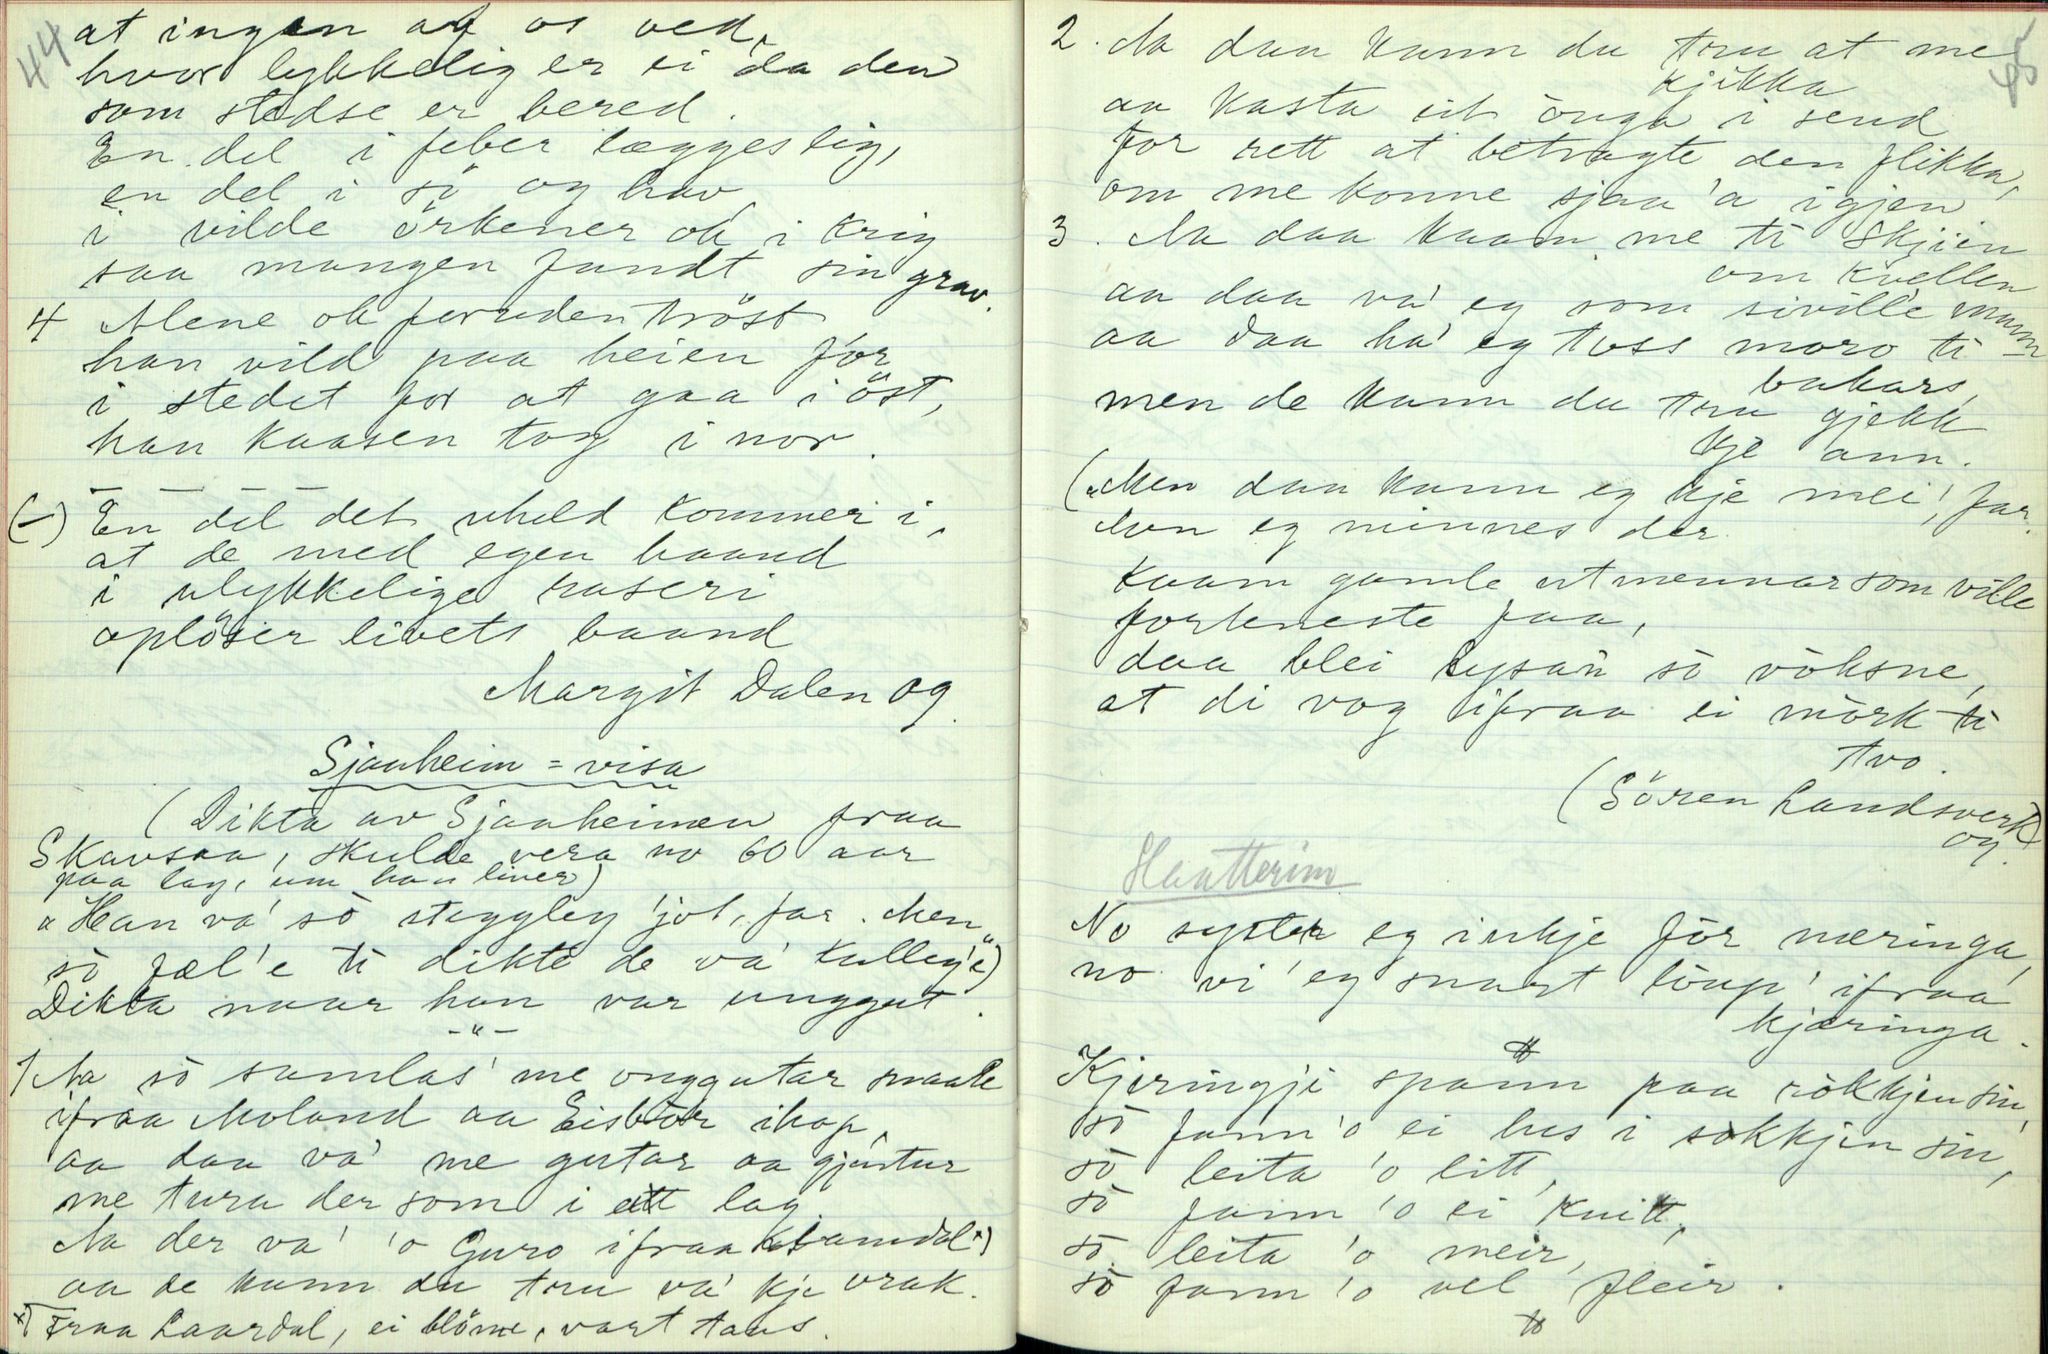 44
at ingen af os ved,
hvor lykkelig er ei da den
som stedse er bered.
En del i feber lægges lig,
en del i sö og hav
i vilde örkener ok i krig
saa mangen fandt sin grav.
4 Alene ok foruden tröst
han vild paa heien for
i stedet for at gaa i öst,
han kaasen tog i nor.
(-) En del det uheld kommer i,
at de med egen haand
i ulykkelige raseri
oplöser livets baand
Margit Dalen og.
Sjaaheim = visa
(Dikta av Sjaaheimen fraa
Skavsaa, skulde vera no 60 aar
paa lag, um han liver)
"Han va' so steggleg 'jol, far. Men
so fæl 'e ti dikte de va' tulleg'e")
Dikta naar han var unggut.
-"-
1 Aa so samlas' me onggutar snaale
ifraa Moland aa Eisbor ihop,
aa daa va' me gutar aa gjentur
me tura der som i ett lag.
Aa der va' 'o Guro ifraa Kramdal *)
aa de kann du tru va' kje vrak.
*) Fraa Laardal, ei blöme, vart taus.
45
2. Aa daa kann du tru at me
kjikka
aa kasta ut onga i send
for rett at betragte den flikka,
om me konne sjaa 'a igjen.
3. Aa daa kaam me ti Skjien
om kvellen
aa daa va' eg som siville mann
aa daa ha' eg toss moro ti
bakars,
men de kann du tru gjekk
kje ann.
("Men daa kann eg kje mei', far.
Aan eg minnes der
kaam gamle utmennar som ville
forteneste faa,
daa blei lysan so voksne,
at di vog ifraa ei mörk ti
tvo.
(Sören Landsverk)
og
Haatterim
No syster eg inkje för næringa,
no vi' eg snart loup' ifraa
kjæringa.
Kjeringji spann paa rokkjen sin,
so fann 'o ei lus i sokkjen sin,
so leita 'o litt,
so fann 'o ei knitt,
so leita 'o meir,
so fann 'o vel fleir.